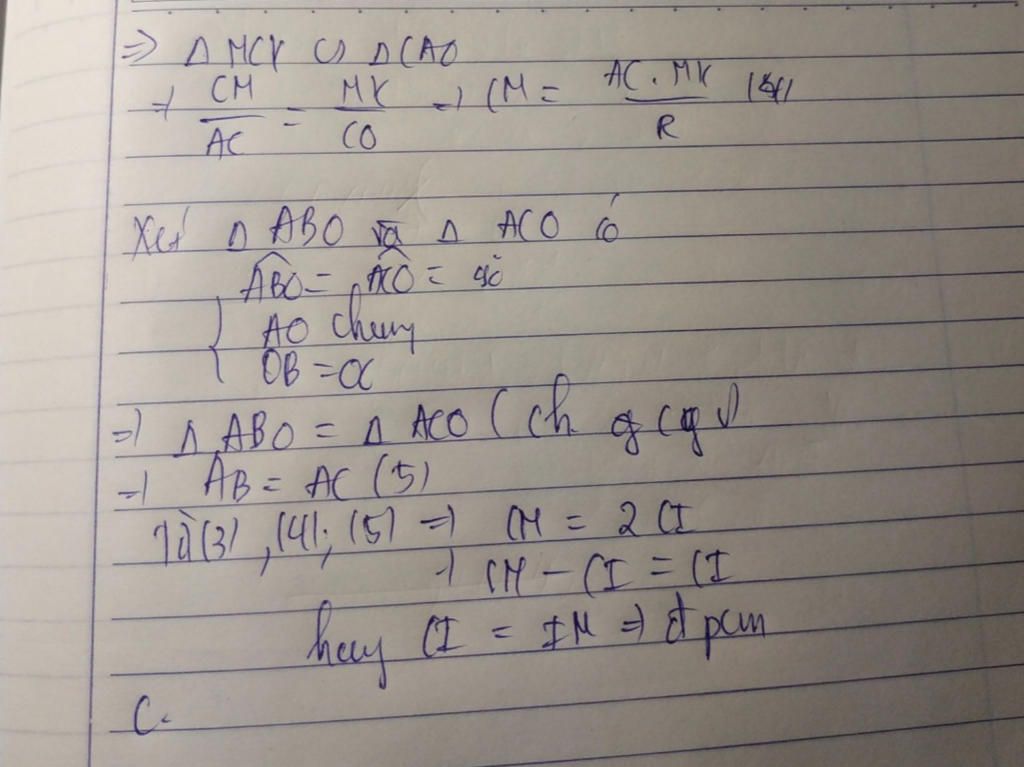 ⇒ Δ MCK ∽ ΔCAO
⇒ CM/AC = MK/CO ⇒ CM = AC.MK/R (4)
Xét Δ ABO và Δ ACO có
ABO = ACO = 90
AO chung
OB = OC
⇒ Δ ABO = Δ ACO (ch gcgv)
⇒ AB = AC (5)
Từ (3), (4), (5) ⇒ CM = 2 CI
⇒ CM - CI = CI
hay CI = IM ⇒ đpcm
C.